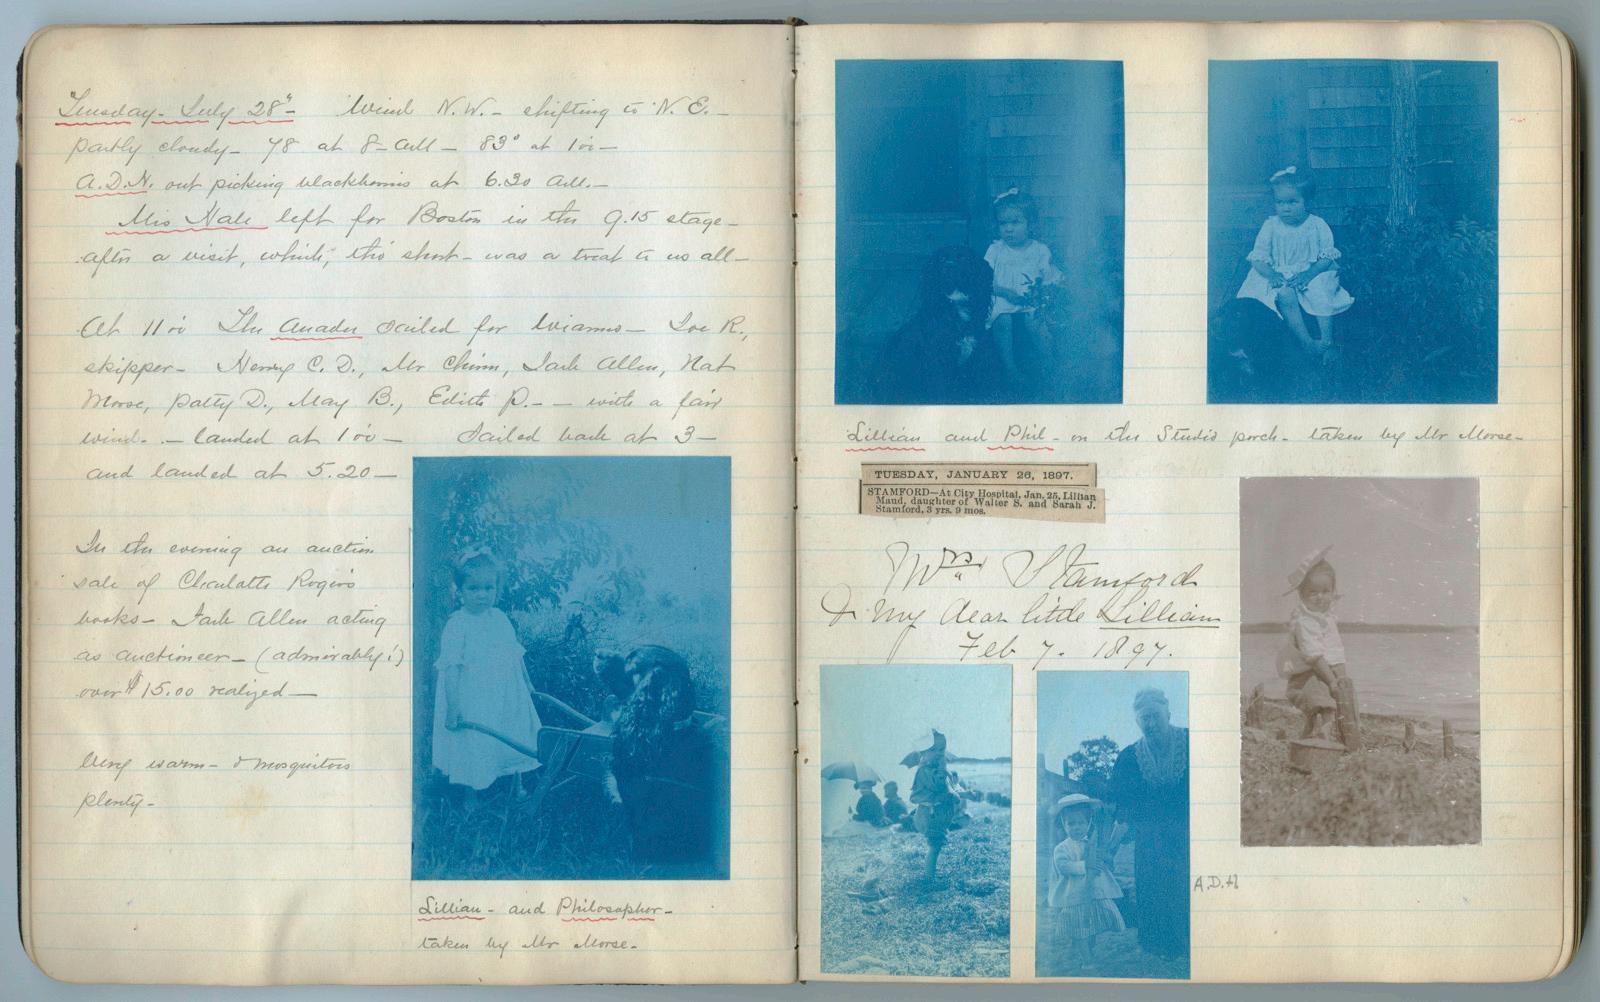 Tuesday - July 28" - Wind N.W. - shifting to N.E. -
partly cloudy - 78 at 8 - A.M. - 83° at 1 -
A.D.H. out picking blackberries at 6.30 A.M. -
Miss Hale left for Boston in the 9.15 stage -
after a visit, which, tho' short - was a treat to us all -
At 11 The sailed for Wianno - Joe R.,
skipper - Henry C. D., Mr Chinn, Jack Allen, Nat
Morse, Patty D., May B., Edith P. - - with a fair
wind. - landed at 1 - Sailed back at 3 -
and landed at 5.20 -
In the evening an auction
sale of Rogers
books - Jack Allen acting
as auctioneer - (admirably!)
over $15.00 realized -
Very warm - & mosquitoes
plenty -
Lillian - and Philosopher -
taken by Mr Morse -
Lillian and Phil - on the Studio porch - taken by Mr Morse -
TUESDAY, JANUARY 26, 1897.
STAMFORD—At City Hospital, Jan. 25, Lillian
Maud, daughter of Walter S. and Sarah J.
Stamford, 3 yrs. 9 mos.
Mrs Stamford
& my dear little Lillian
Feb 7. 1897.
A.D.H